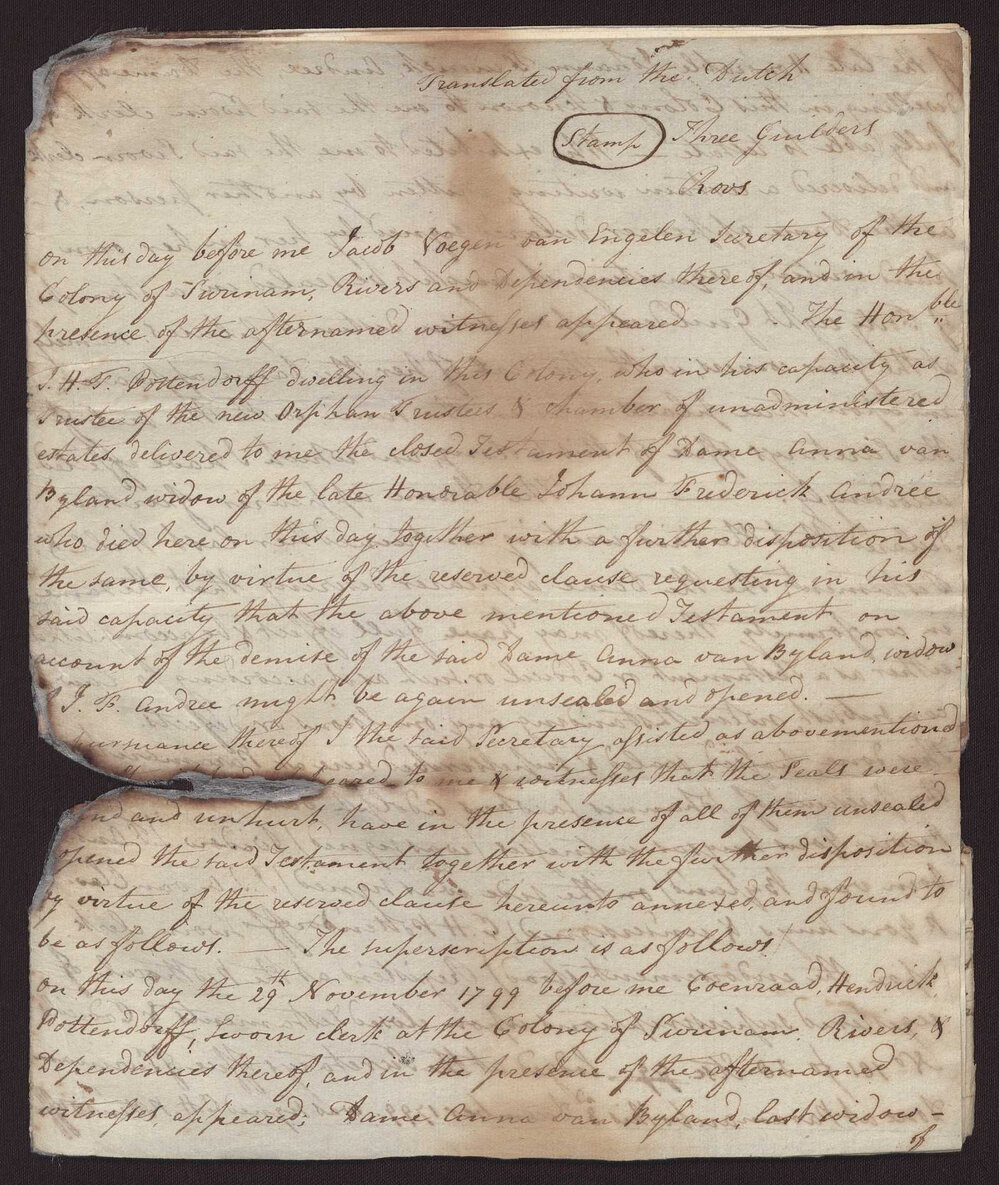 Translated from the Dutch
Stamp Three Guilders
Roos
on this day before me Jacob Voegen van Engelen Secretary of the
Colony of Surinam, Rivers and Dependencies thereof, and in the
presence of the afternamed witnesses appeared. The Honble
J. H. F. Pottendorff dwelling in this Colony, who in his capacity as
Trustee of the new Orphan Trustees & chamber of unadministered
estates, delivered to me the closed Testament of Dame Anna van
Byland widow of the late Honorable Johann Frederick Andrée
who died here on this day together with a further disposition of
the same, by virtue of the reserved clause requesting in his
said capacity that the above mentioned Testament on
account of the demise of the said Dame Anna van Byland, widow
J. F. Andree might be again unsealed and opened. —
pursuance thereof I the said Secretary, assisted as abovementioned
to me & witnesses that the Seals were
and unhurt, have in the presence of all of them unsealed
opened the said Testament together with the further disposition
by virtue of the reserved clause hereunto annexed, and found to
be as follows. — The superscription is as follows.
On this day the 29th November 1799 before me Coenraad, Hendrick
Pottendorff, Sworn clerk at the Colony of Surinam Rivers, &
Dependencies thereof, and in the presence of the afternamed
witnesses, appeared; Dame Anna van Byland, last widow –
of